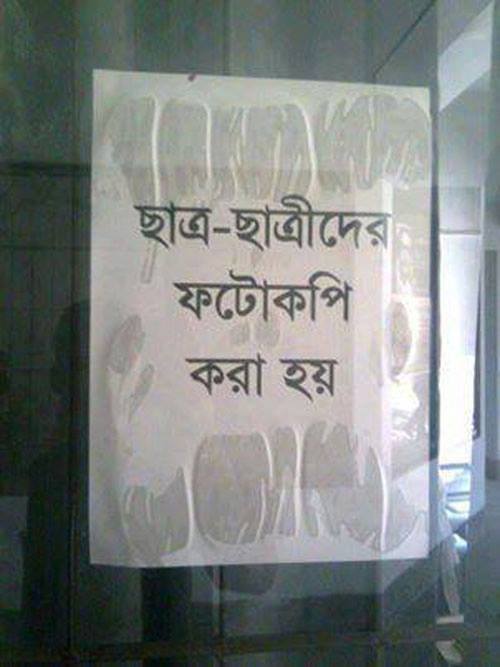 ছাত্র-ছাত্রীদের
ফটোকপি
করা হয়